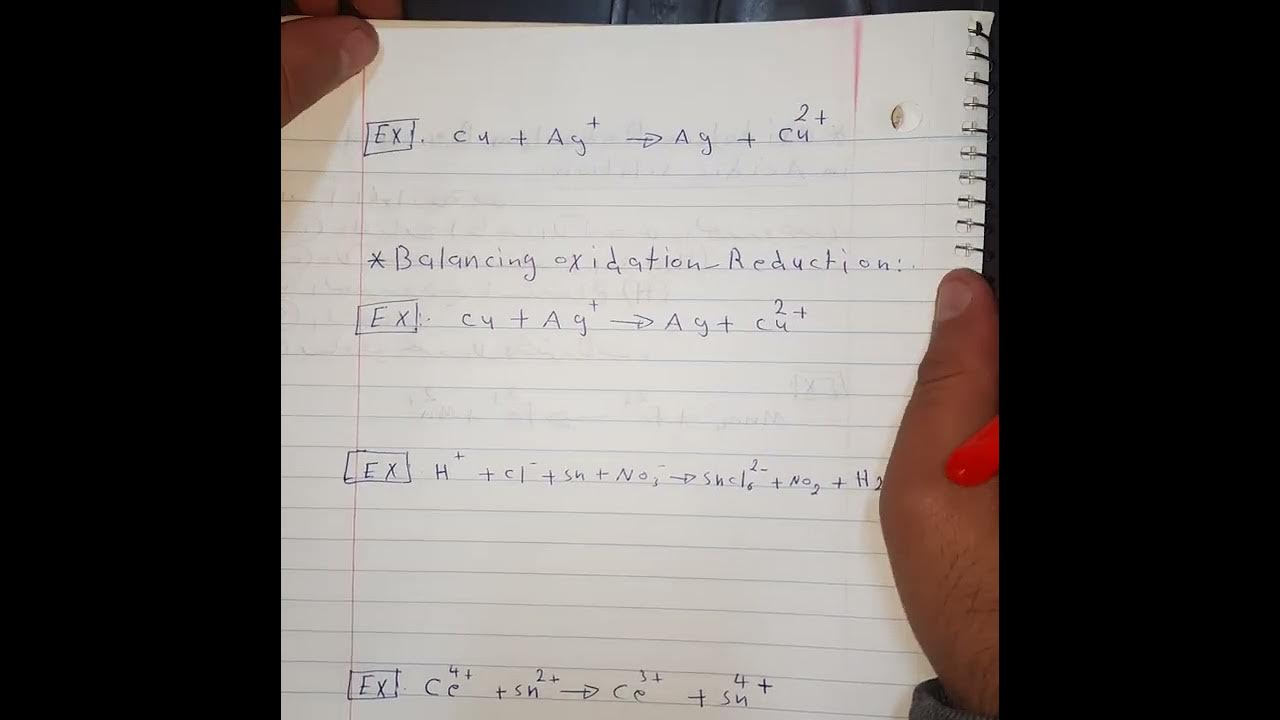 EX. Cu + Ag⁺ → Ag + Cu²⁺
*Balancing oxidation-Reduction:.
EX. Cu + Ag⁺ → Ag + Cu²⁺
EX H⁺ + Cl⁻ + Sn + NO₃⁻ → SnCl₆²⁻ + NO₂ + H₂
EX. Ce⁴⁺ + Sn²⁺ → Ce³⁺ + Sn⁴⁺